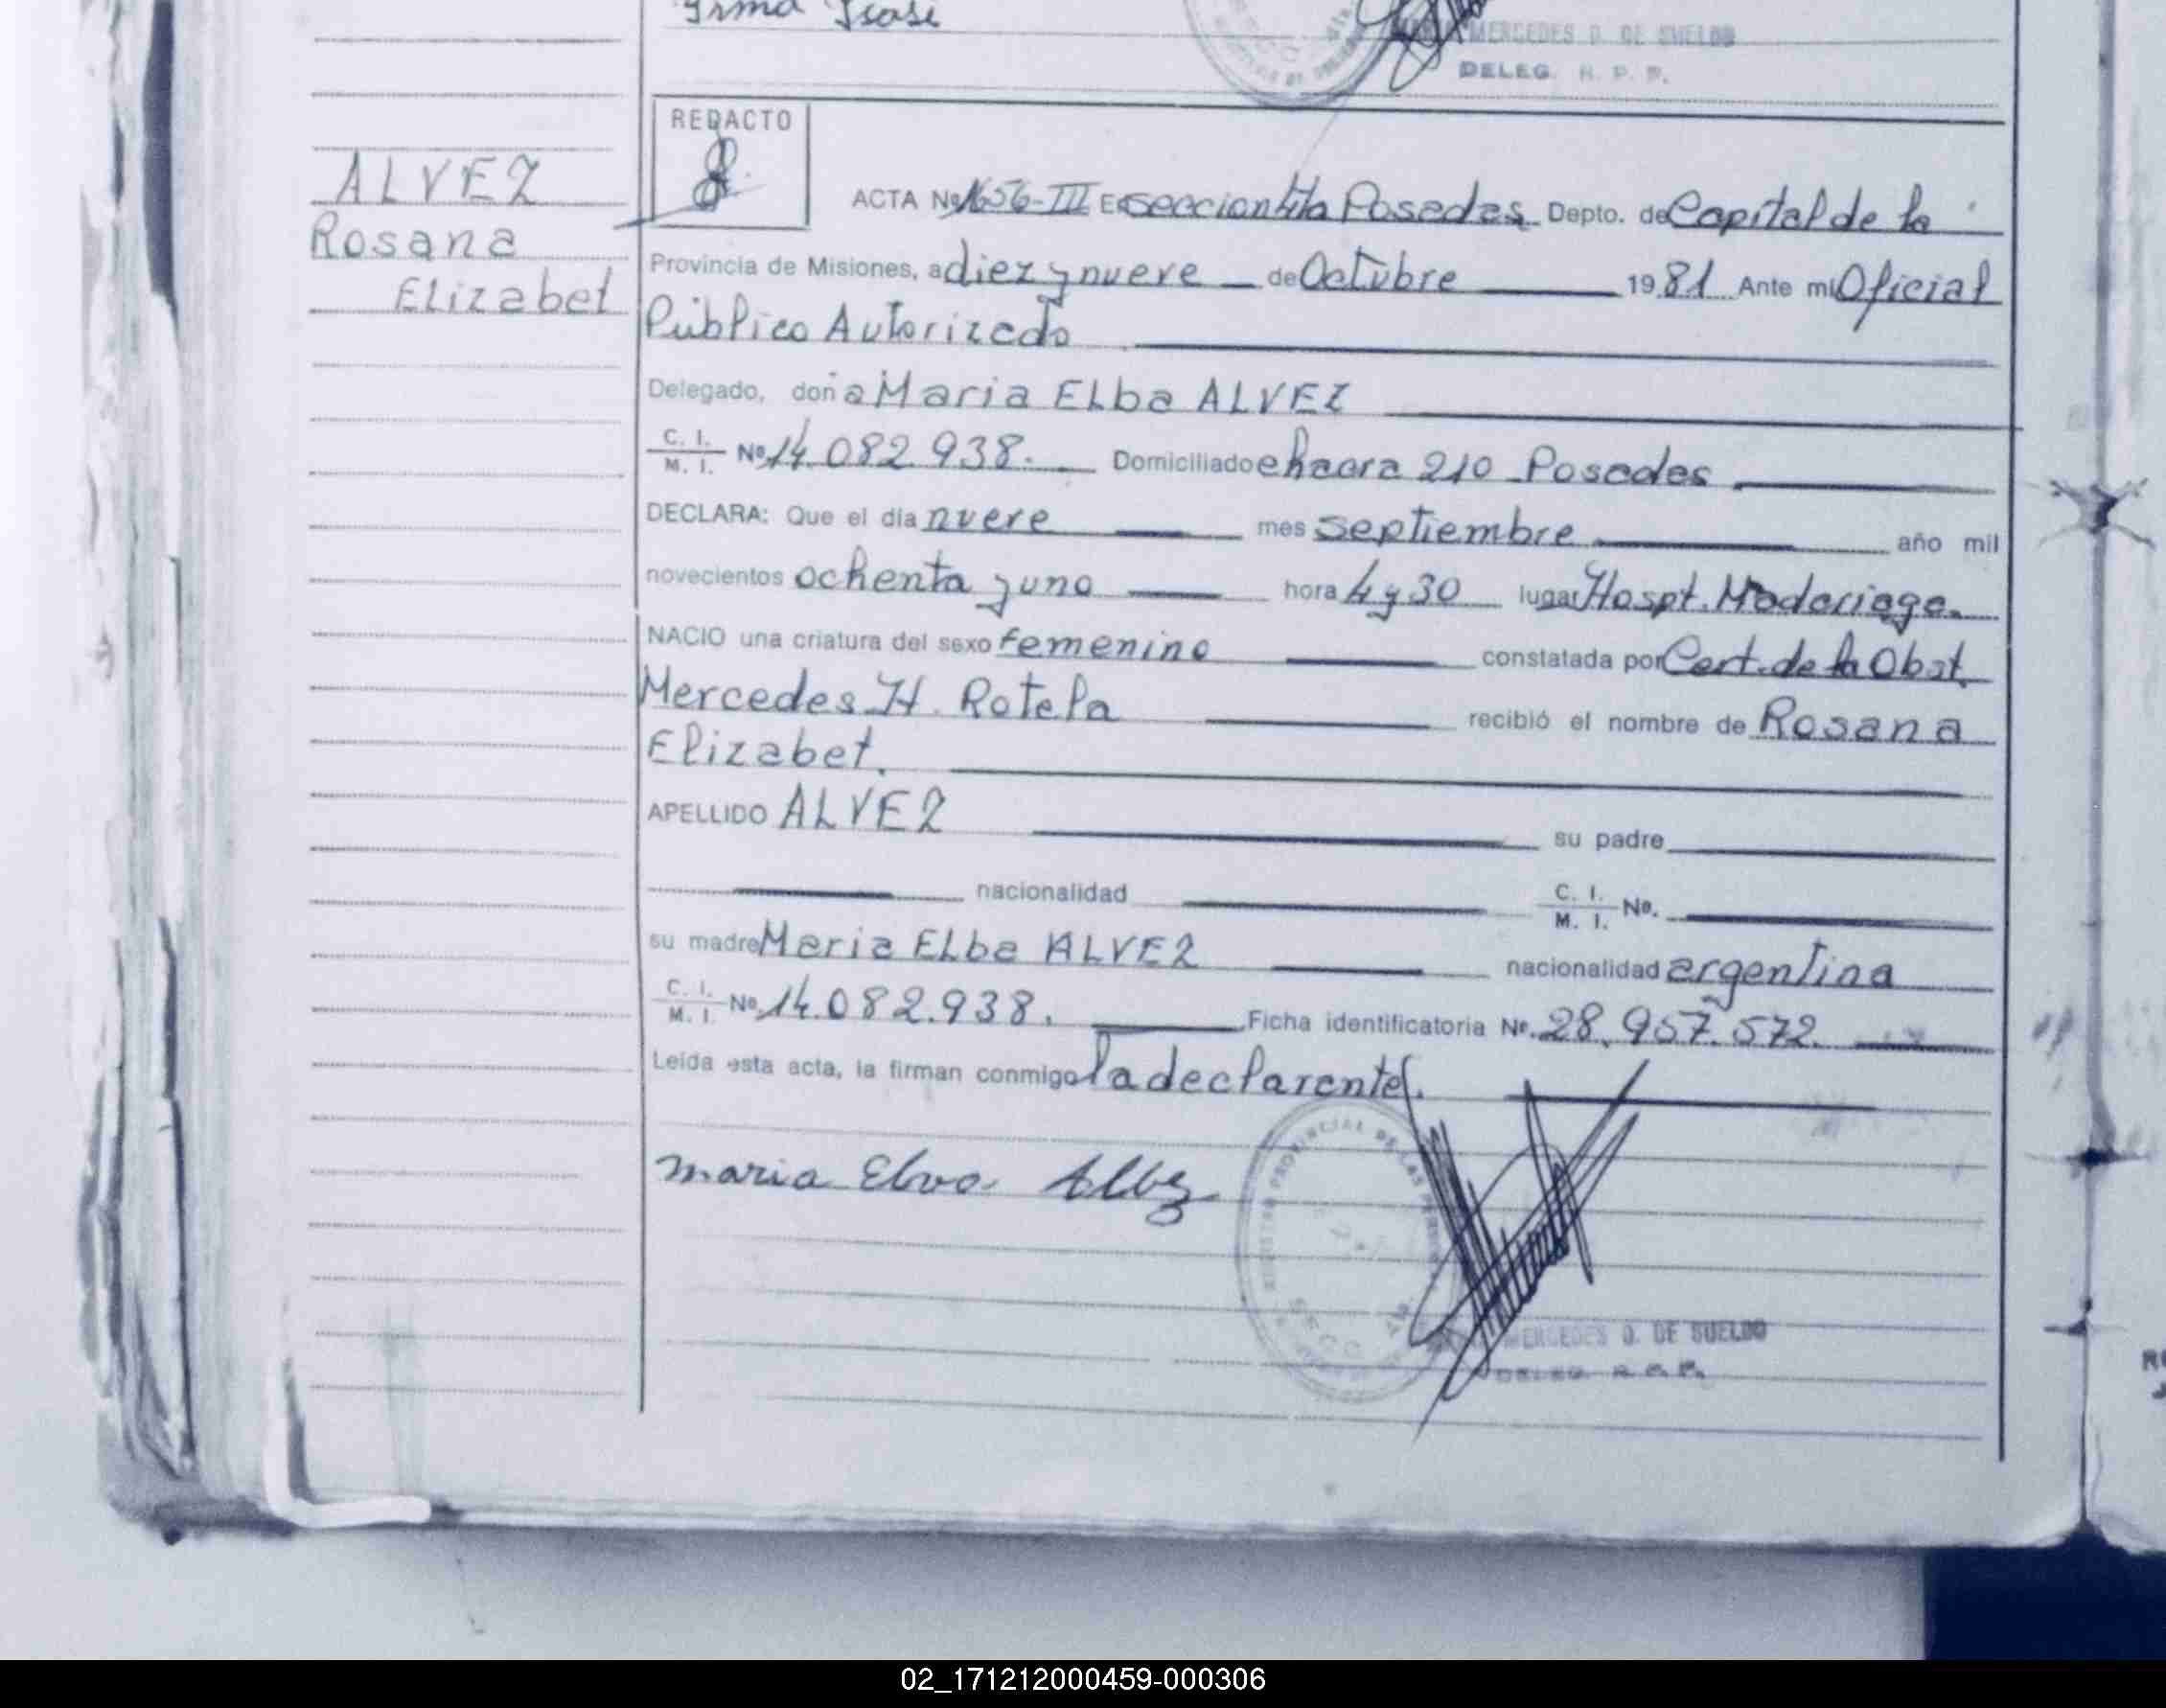 Irma
MERCEDES O. DE SUELDO
DELEG. R. P. P.
REDACTO
ALVEZ
Rosana
Elizabet
ACTA Nº 1656-III En Seccion 4ta Posadas Depto. de Capital de la
Provincia de Misiones, a diez y nueve de Octubre 1981 Ante mi Oficial
Público Autorizado
Delegado, doña Maria Elba ALVEZ
C. I. M. I. Nº 14.082.938. Domiciliado chacra 210 Posadas
DECLARA: Que el día nueve mes septiembre año mil
novecientos ochenta y uno hora 4 y 30 lugar Hospt. Madariaga.
NACIO una criatura del sexo femenino constatada por Cert. de la Obst.
Mercedes H. Rotela recibió el nombre de Rosana
Elizabet.
APELLIDO ALVEZ su padre
nacionalidad C. I. M. I. Nº.
su madre Maria Elba ALVEZ nacionalidad argentina
C. I. M. I. Nº 14.082.938. Ficha identificatoria Nº. 28.957.572.
Leída esta acta, la firman conmigo la declarante.
maria Elva Albez
REGISTRO PROVINCIAL DE LAS PERSONAS
MERCEDES O. DE SUELDO
DELEG. R. P. P.
02_171212000459-000306